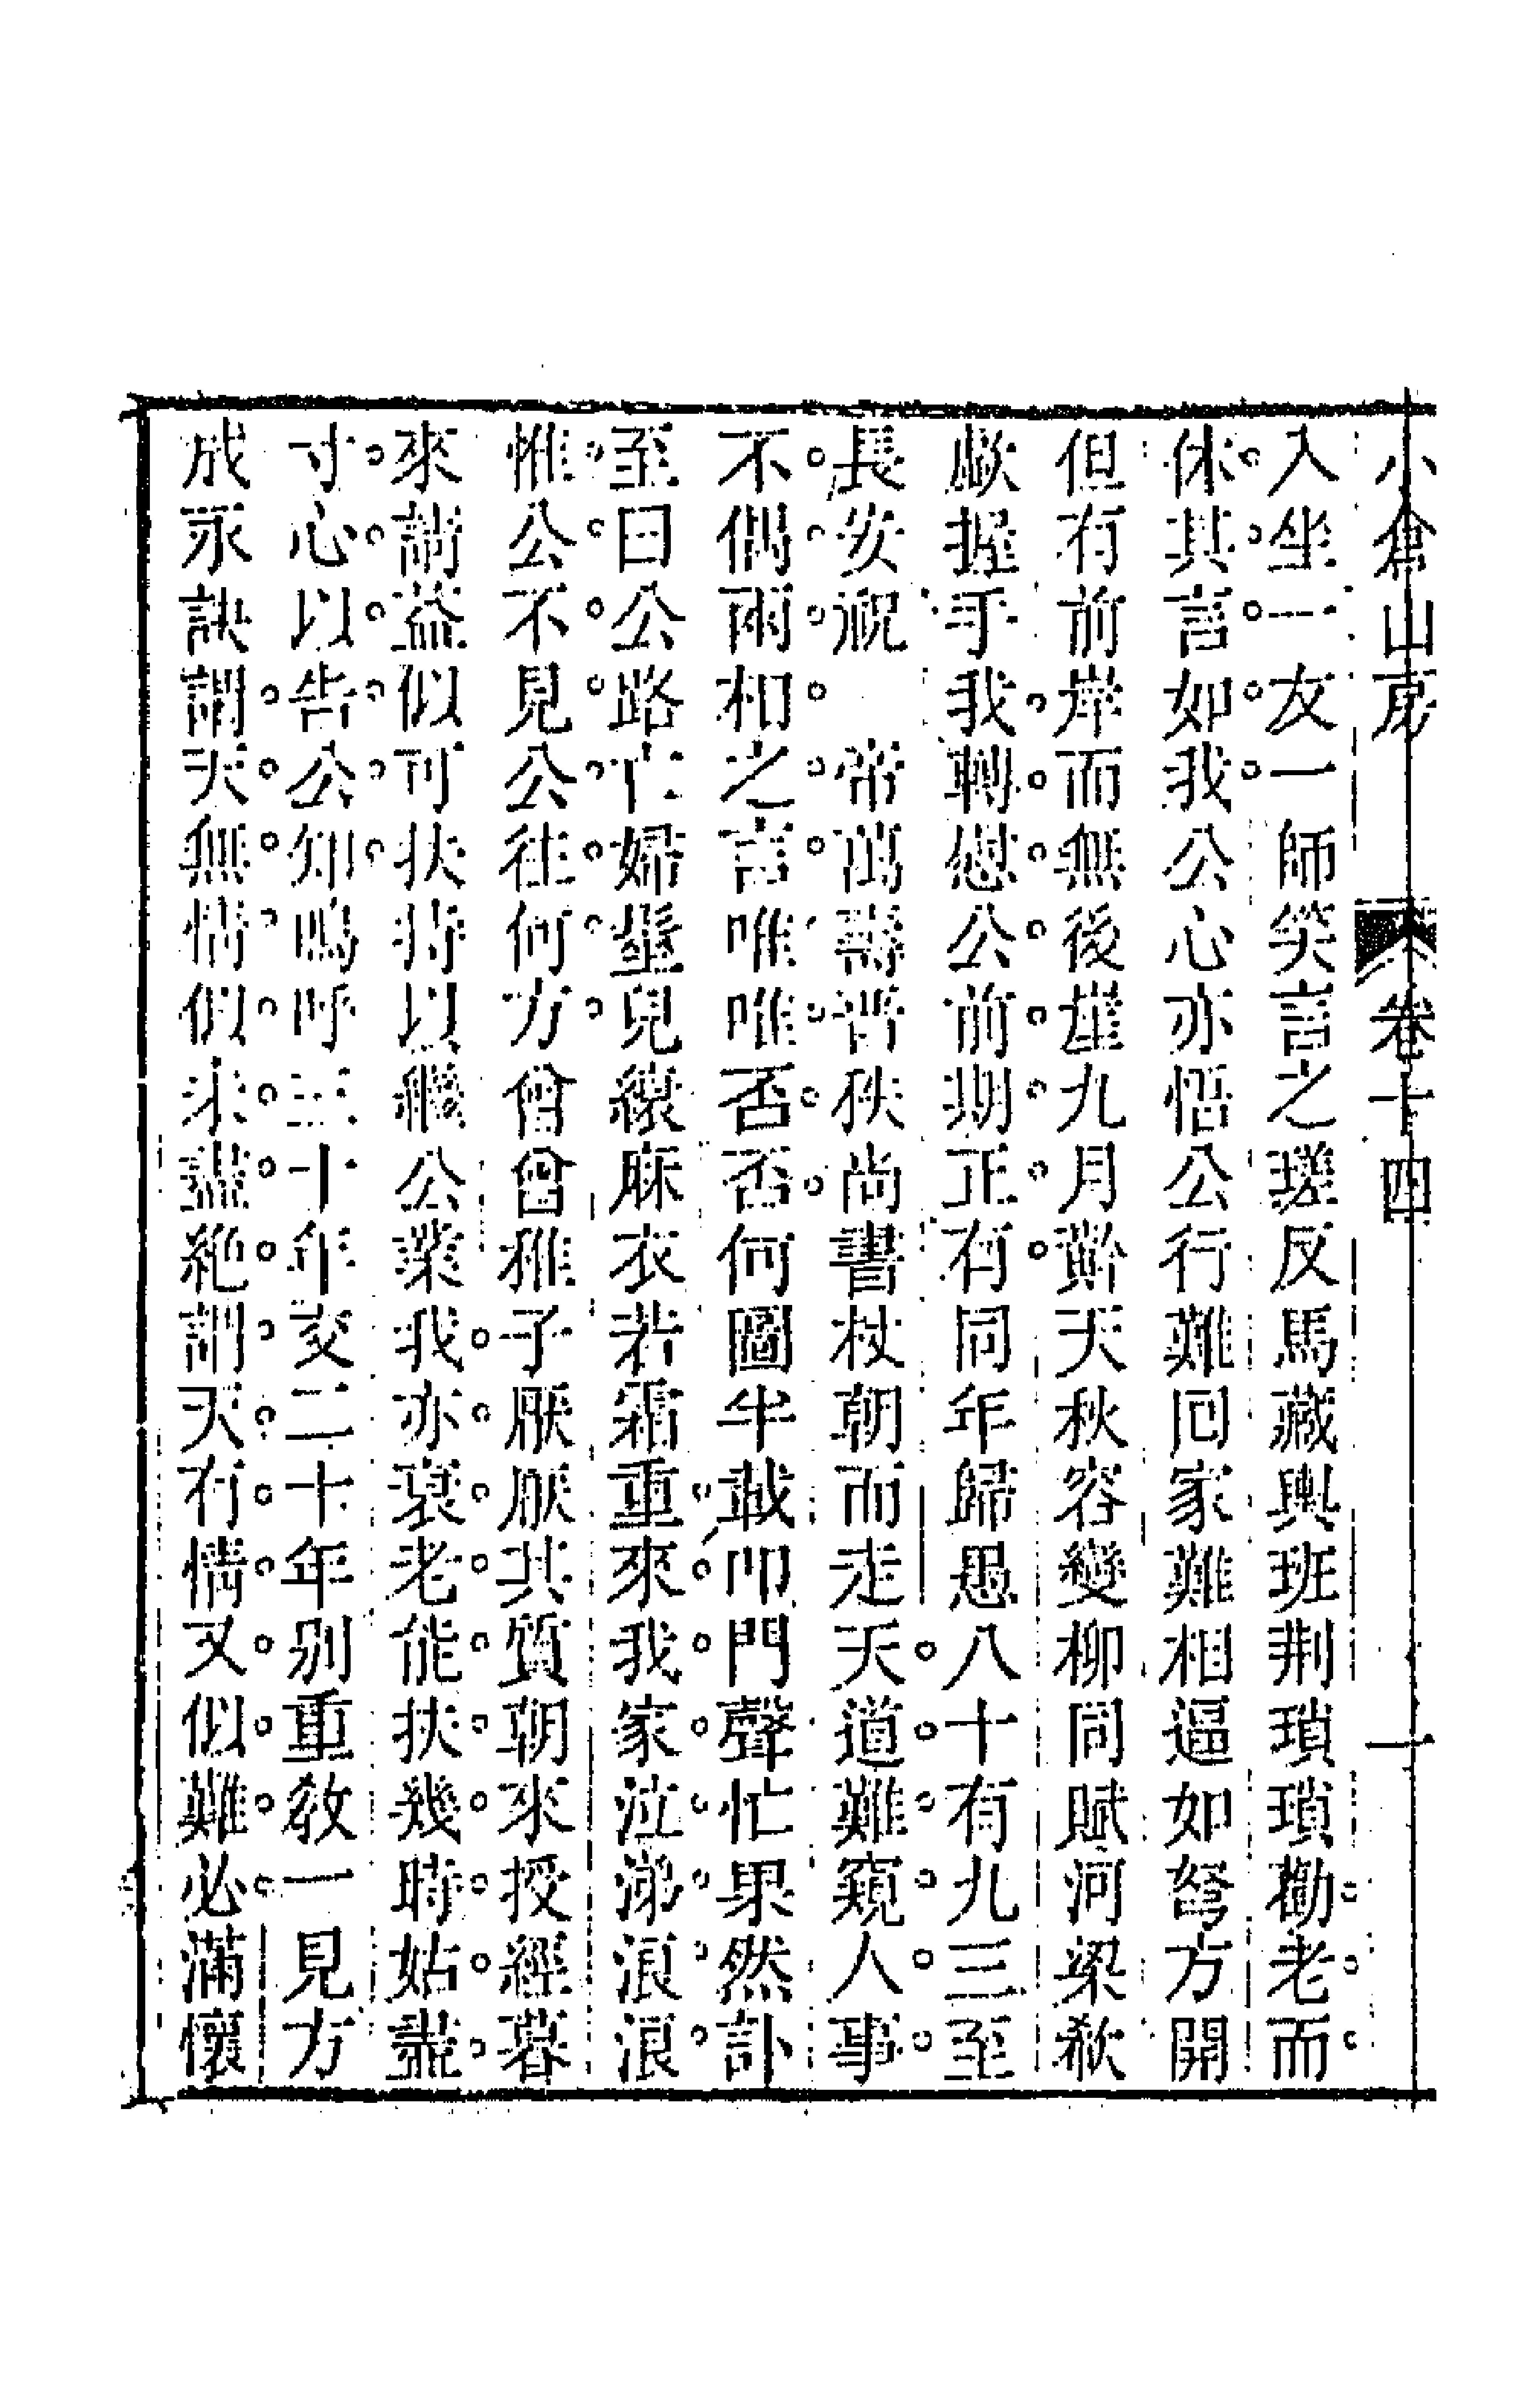 小倉山房 卷十四 一
入坐一友一師笑言之瑳反馬藏輿班荆瑣瑣勸老而
休其言如我公心亦悟公行難囘家難相逼如弩方開
但有前岸而無後崖九月斷天秋容變柳同賦河梁欷
歔握手我轉慰公前期正有同年歸愚八十有九三至
長安祝 帝萬壽晋秩尚書杖朝而走天道難窺人事
不偶兩相之言唯唯否否何圖半載叩門聲忙果然訃
至曰公路亡婦髽兒縗麻衣若霜重來我家泣涕浪浪
惟公不見公往何方曾曾稚子厭厭共質朝來授經暮
來請益似可扶持以繼公業我亦衰老能扶幾時姑盡
寸心以告公知嗚呼三十年交二十年别重敘一見方
成永訣謂天無情似未盡絶謂天有情又似難必滿懷